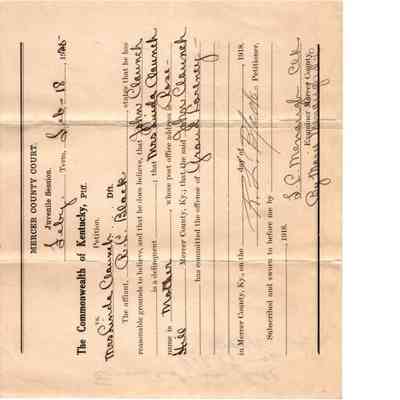 MERCER COUNTY COURT.
Juvenile Session.
Feby Term, Feb - 18 1925
The Commonwealth of Kentucky, Plff.
vs. Petition.
Mrs Linda Claunch Dft.
The affiant, R. L. Black, states that he has
reasonable grounds to believe, and that he does believe, that John Claunch
is a delinquent; that Mrs Linda Claunch
name is Mother, whose post office address is Rose-
Hill Mercer County, Ky; that the said John Claunch
has committed the offense of Grand Larceny
in Mercer County, Ky., on the day of , 1918.
R. L. Black Petitioner.
Subscribed and sworn to before me by
, 1918.
Clk
Examiner Mercer County.
By